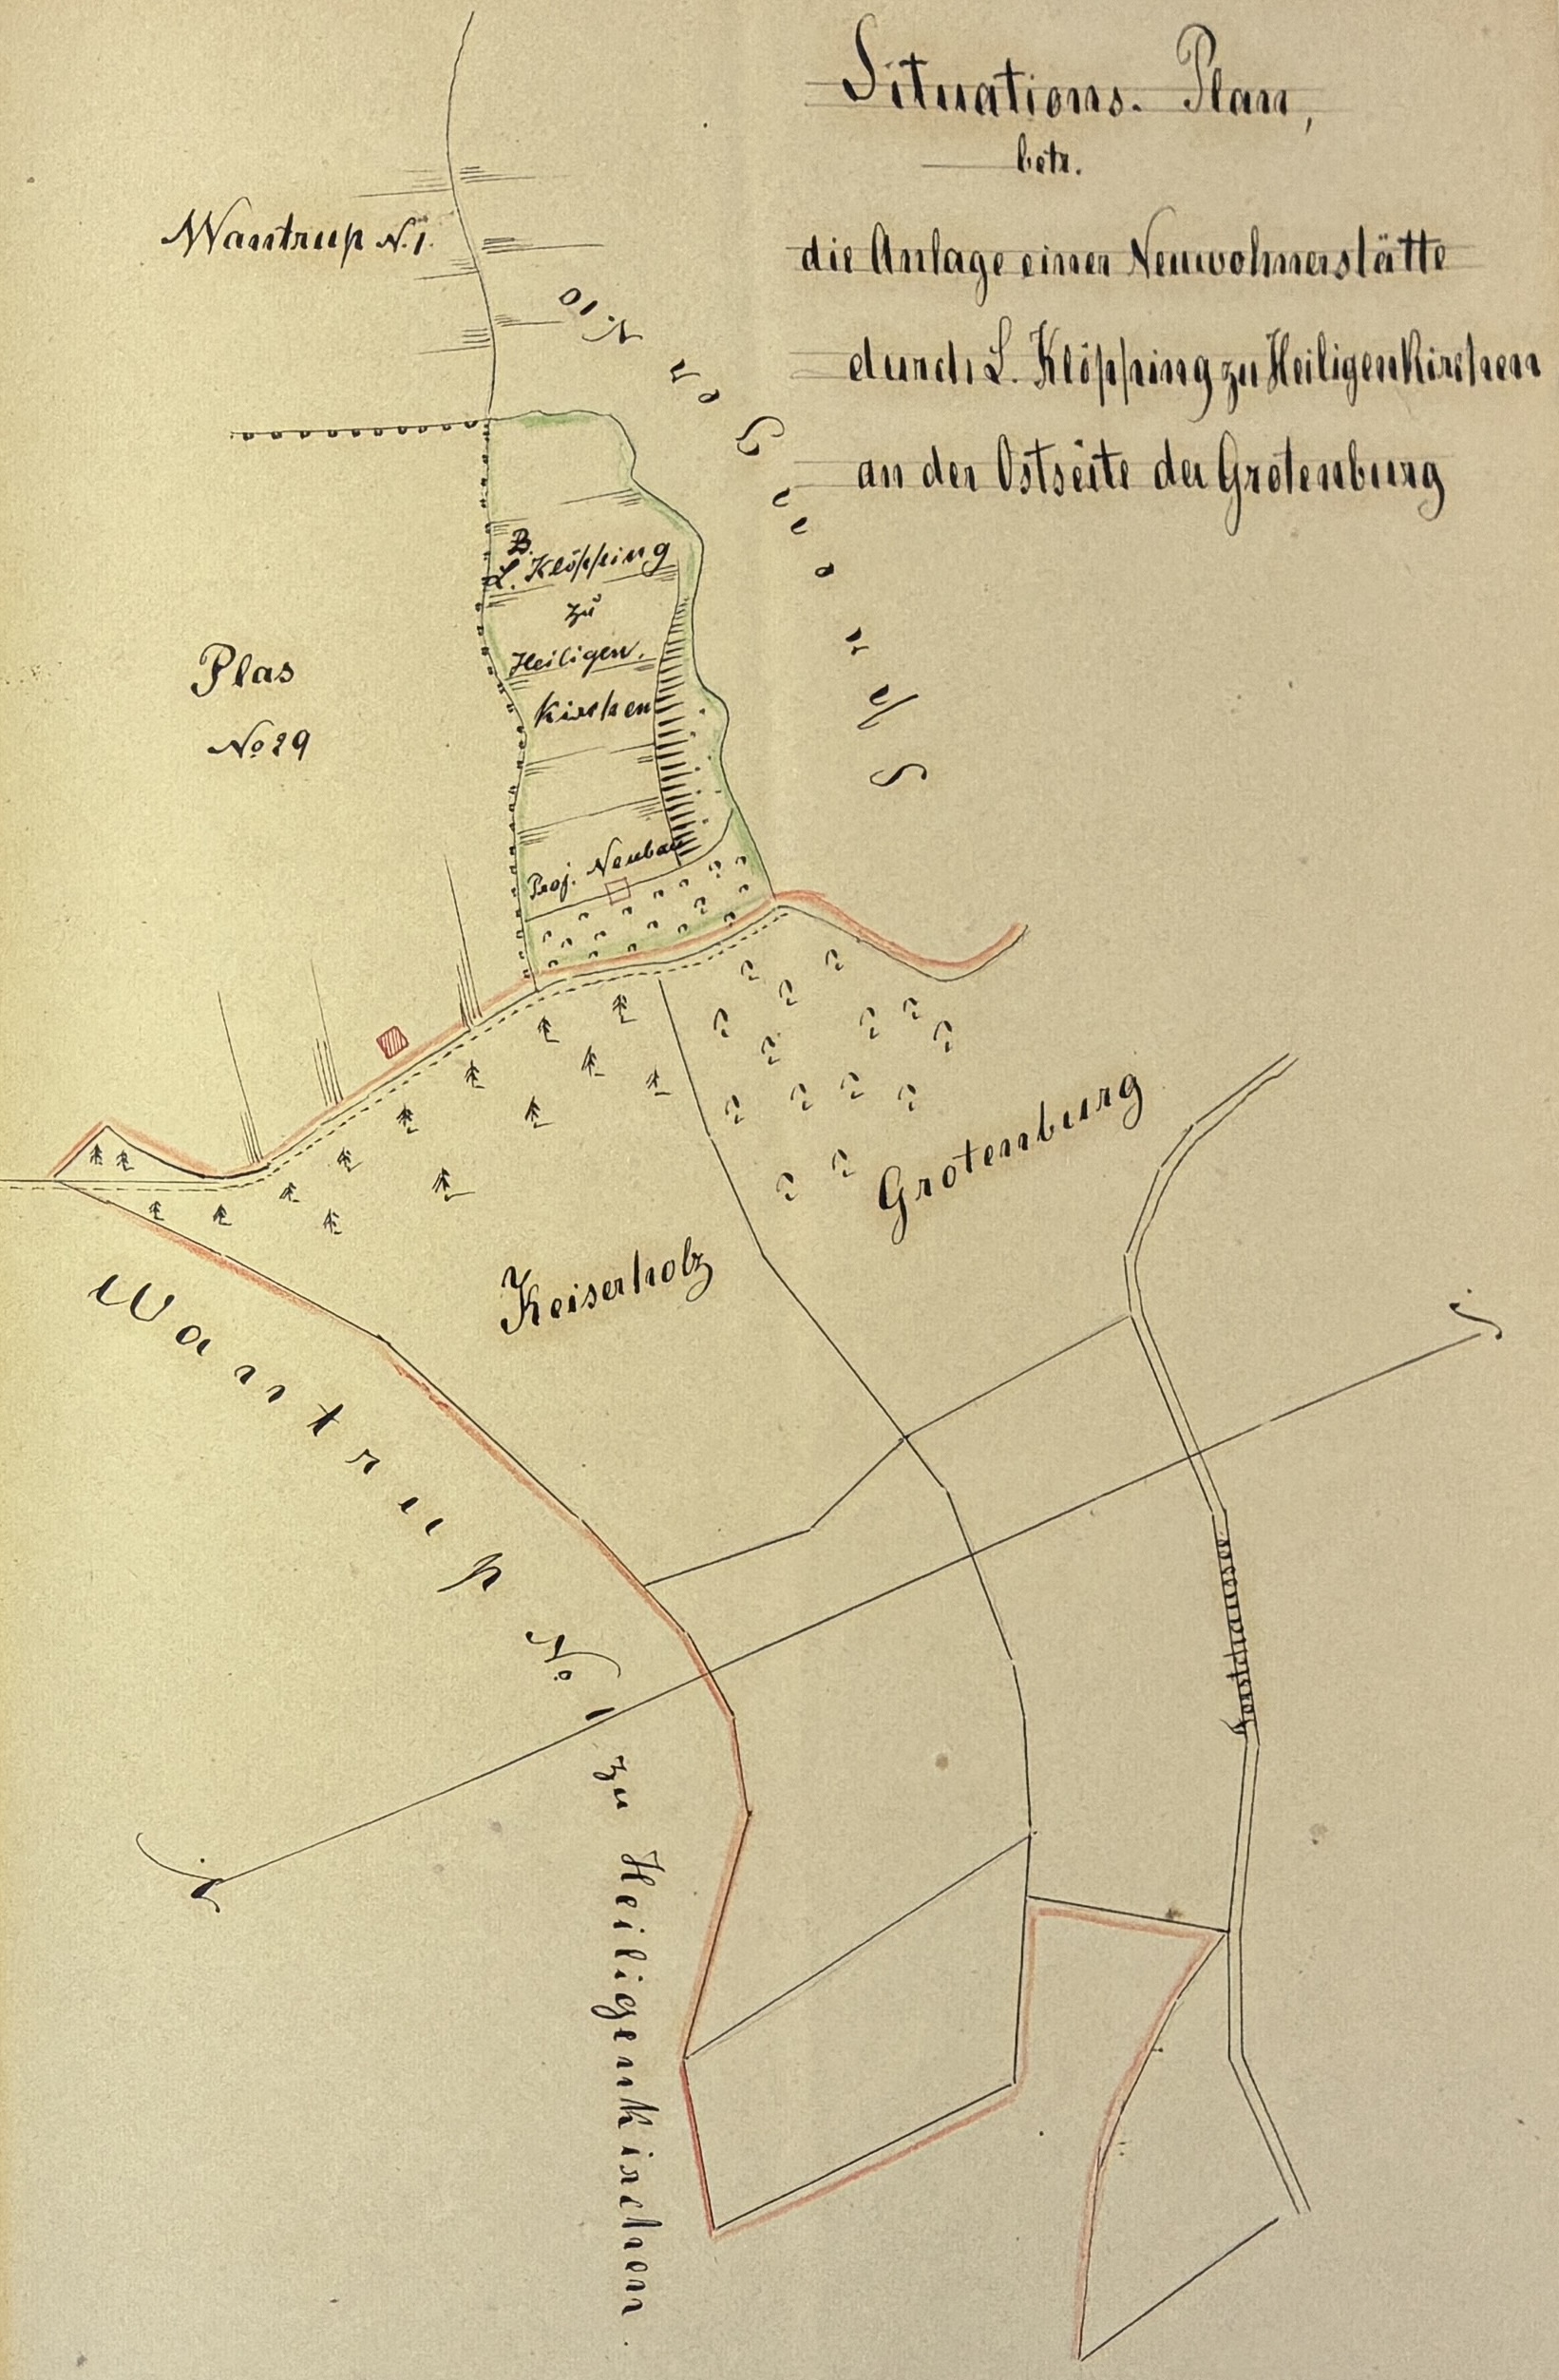 Situations-Plan,
betr.
die Anlage einer Neuwohnerstätte
durch L. Klöpping zu Heiligenkirchen
an der Ostseite der Grotenburg
Wantrup N. 1.
N. 10
B.
L. Klöpping
zu
Heiligen-
kirchen
Plas
No 29
Proj. Neubau
Grotenburg
Keiserholz
Wantrup No. 1 zu Heiligenkirchen.
Forstchaussee